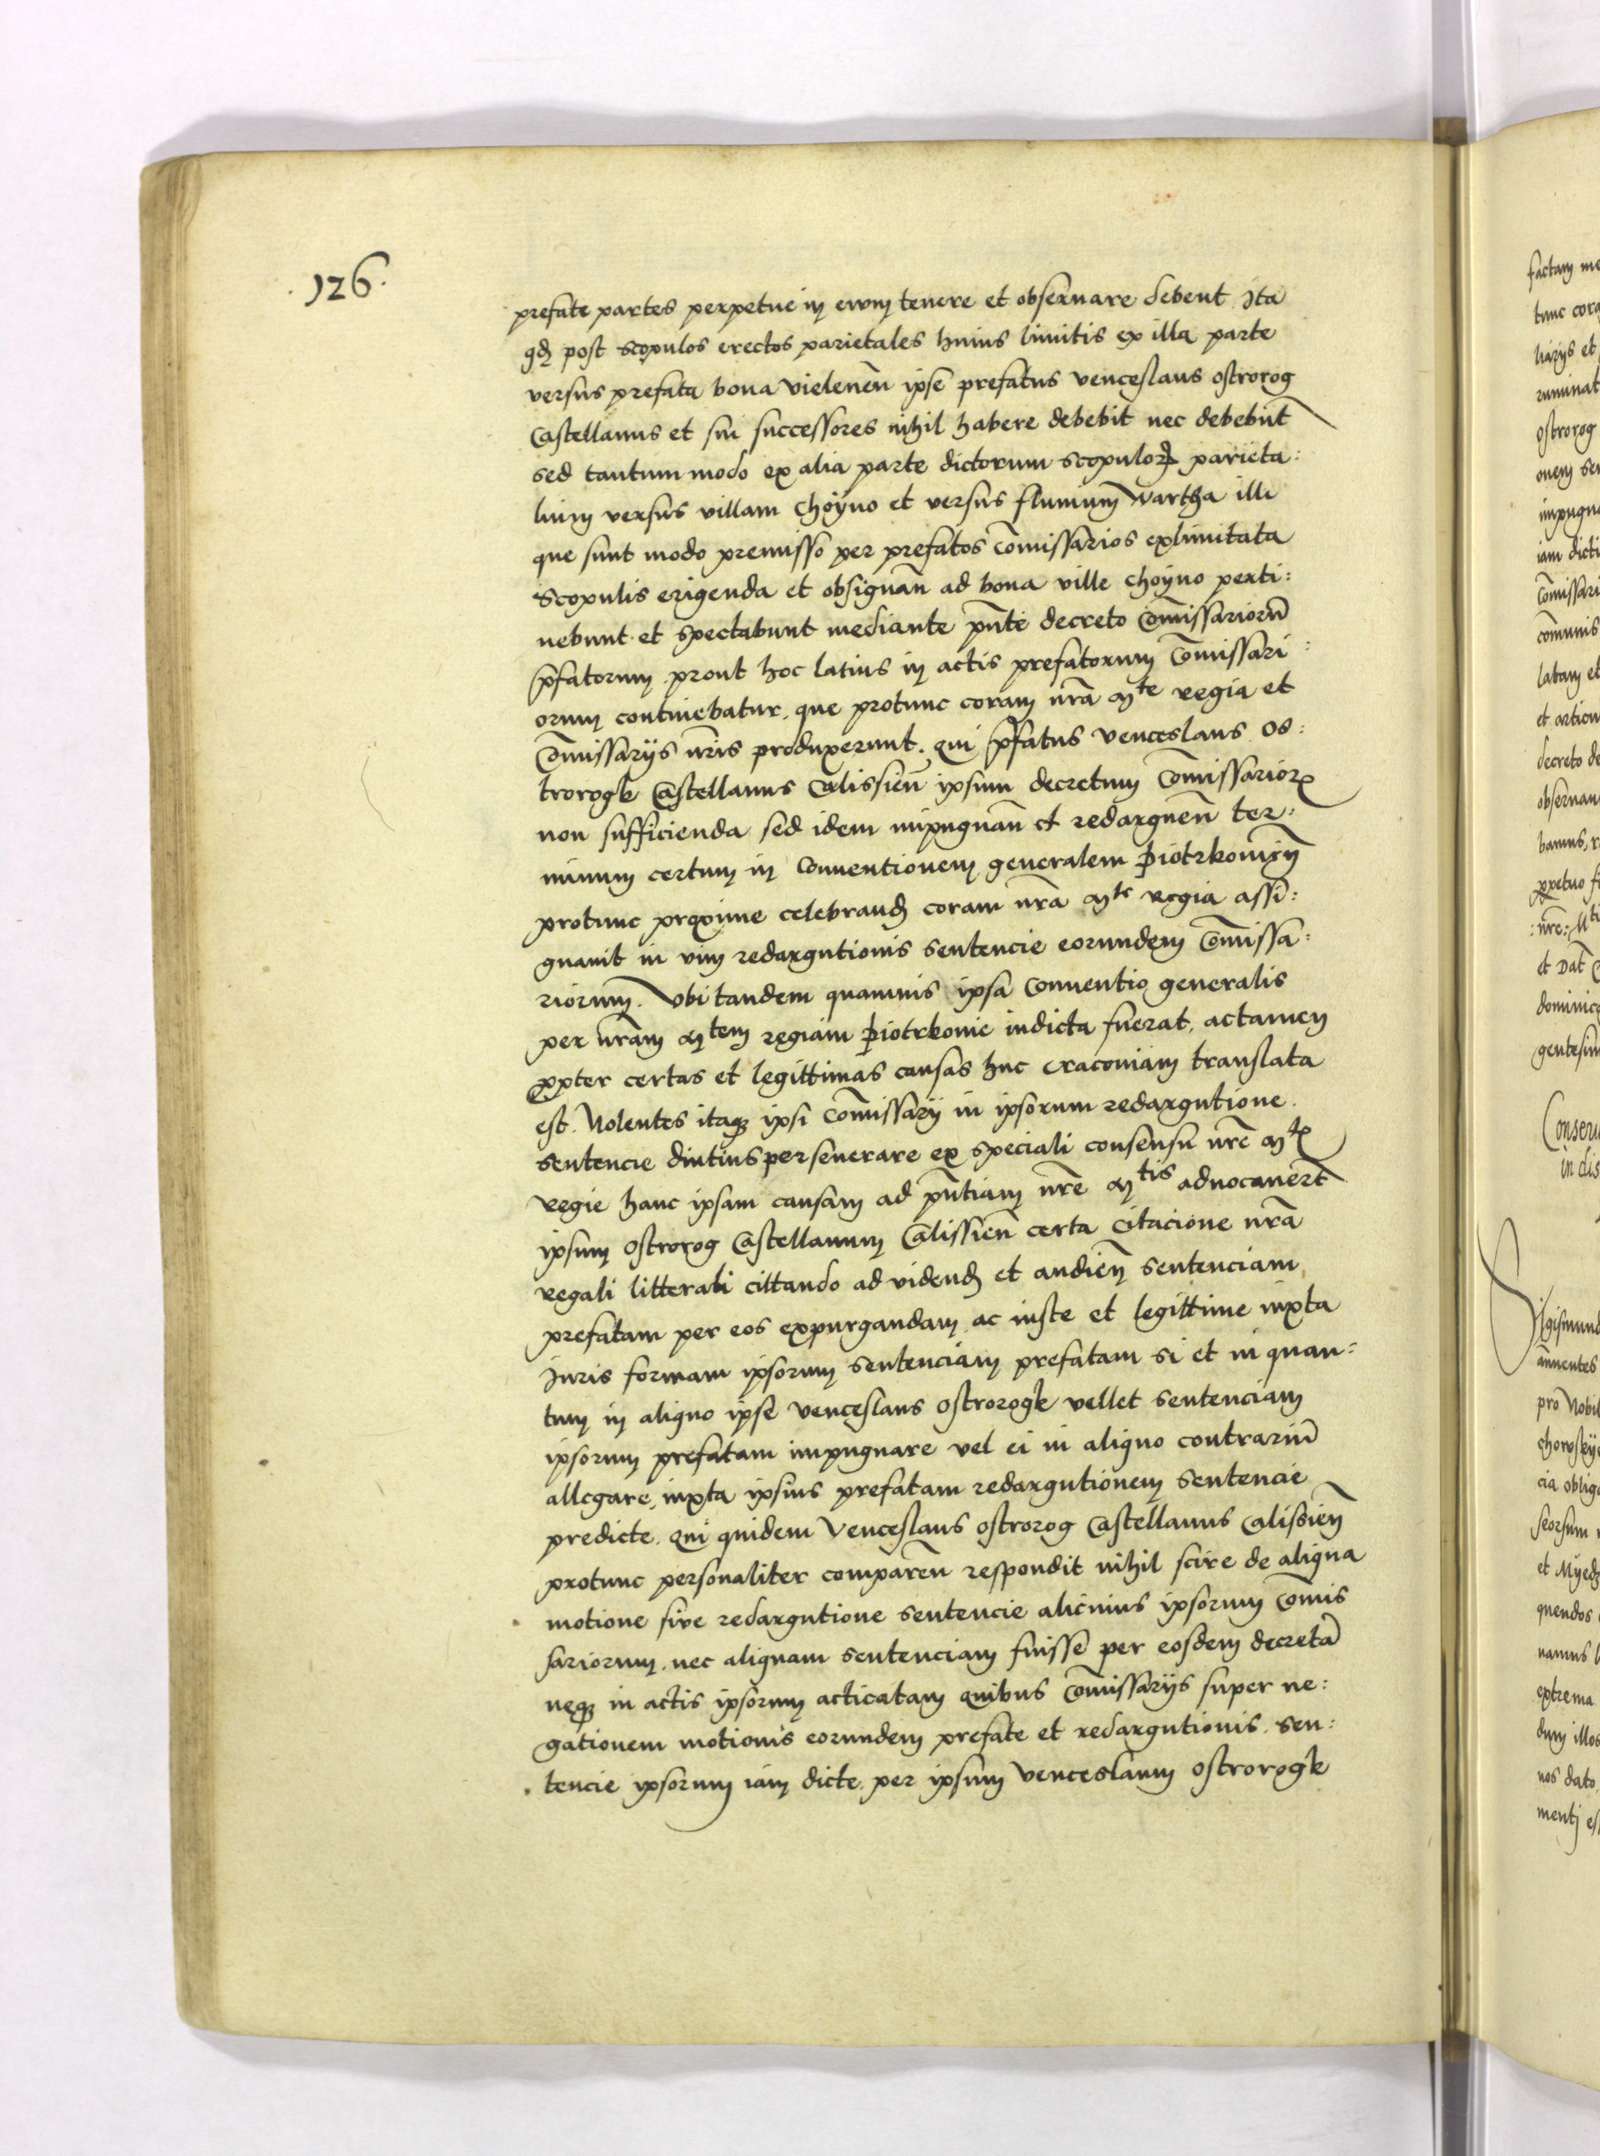 .126.
prefate partes perpetue in ewm tenere et obseruare debent Ita
qđ post scopulos erectos parietales huius limitis ex illa parte
versus prefata bona vielenen̄ ipse prefatus venceslaus ostrorog
Castellanus et sui successores nihil habere debebit nec debebūt
sed tantum modo ex alia parte dictorum scopuloꝝ parieta:
lium versus villam Choyno et versus fluuium wartha illi
que sunt modo premisso per prefatos Com̄issarios exlimitata
scopulis erigenda et obsignan̄ ad bona ville choyno perti:
nebunt et spectabunt mediante pn̄te decreto Com̄issariorū
p̄fatorum prout hoc latius in actis prefatorum Com̄issari:
orum continebatur, que protunc coram nr̄a Mte regia et
Com̄issarijs nr̄is produxerunt. qui p̄fatus venceslaus os:
trorogk Castellanus Calissien̄ ipsum decretum Com̄issarioꝝ
non sufficienda sed idem impugnan̄ et redarguen̄ ter:
minum certum in Conuentionem generalem piotrkouien̄
protunc proxime celebranđ coram nr̄a Mte regia assi:
gnauit in vim redargutionis sentencie eorundem Com̄issa:
riorum. vbi tandem quamuis ipsa Conuentio generalis
per nr̄am Mtem regiam piotrkouie indicta fuerat, actamen
ꝓpter certas et legittimas causas huc craconiam translata
est. Nolentes itaqꝫ ipsi Com̄issarij in ipsorum redargutione
sentencie diutius perseuerare ex speciali consensu nr̄e Mtis
regie hanc ipsam causam ad pn̄tiam nr̄e Mtis aduocauerūt
ipsum ostrorog Castellanum Calissien̄ certa citacione nr̄a
regali litterali cittando ad videnđ et audien̄ sentenciam
prefatam per eos expurgandam ac iuste et legittime iuxta
iuris formam ipsorum sentenciam prefatam si et in quan:
tum in aliquo ipse venceslaus ostrorogk vellet sentenciam
ipsorum prefatam impugnare vel ei in aliquo contrariū
allegare, iuxta ipsius prefatam redargutionem sentencie
predicte. qui quidem venceslaus ostrorog Castellanus Calissien̄
protunc personaliter comparen̄ respondit nihil scire de aliqua
motione siue redargutione sentencie alicuius ipsorum Com̄is
sariorum. nec aliquam sentenciam fuisse per eosdem decretā
neqꝫ in actis ipsorum acticatam quibus Com̄issarijs super ne:
gationem motionis eorundem prefate et redargutionis sen:
tencie ipsorum iam dicte per ipsum venceslaum ostrorogk